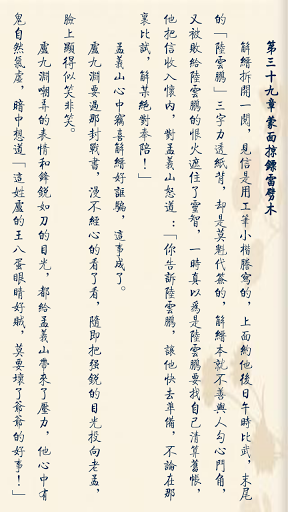 第三十九章 蒙面掠鏢雷劈木
解縉拆開一閱，見信是用工筆小楷謄寫的，上面約他後日午時比武，末尾
的「陸雲鵬」三字力透紙背，卻是莫魁代簽的，解縉本就不善與人勾心鬥角，
又被敗給陸雲鵬的恨火遮住了靈智，一時真以爲是陸雲鵬要找自己清算舊帳，
他把信收入懷內，對孟義山怒道：「你告訴陸雲鵬，讓他快去準備，不論在那
裏比試，解某絕對奉陪！」
孟義山心中竊喜解縉好誆騙，這事成了。
盧九淵要過那封戰書，漫不經心的看了看，隨即把强銳的目光投向老孟，
臉上顯得似笑非笑。
盧九淵嘲弄的表情和鋒銳如刀的目光，都給孟義山帶來了壓力，他心中有
鬼自然氣虛，暗中想道「這姓盧的王八蛋眼睛好賊，莫要壞了爺爺的好事！」